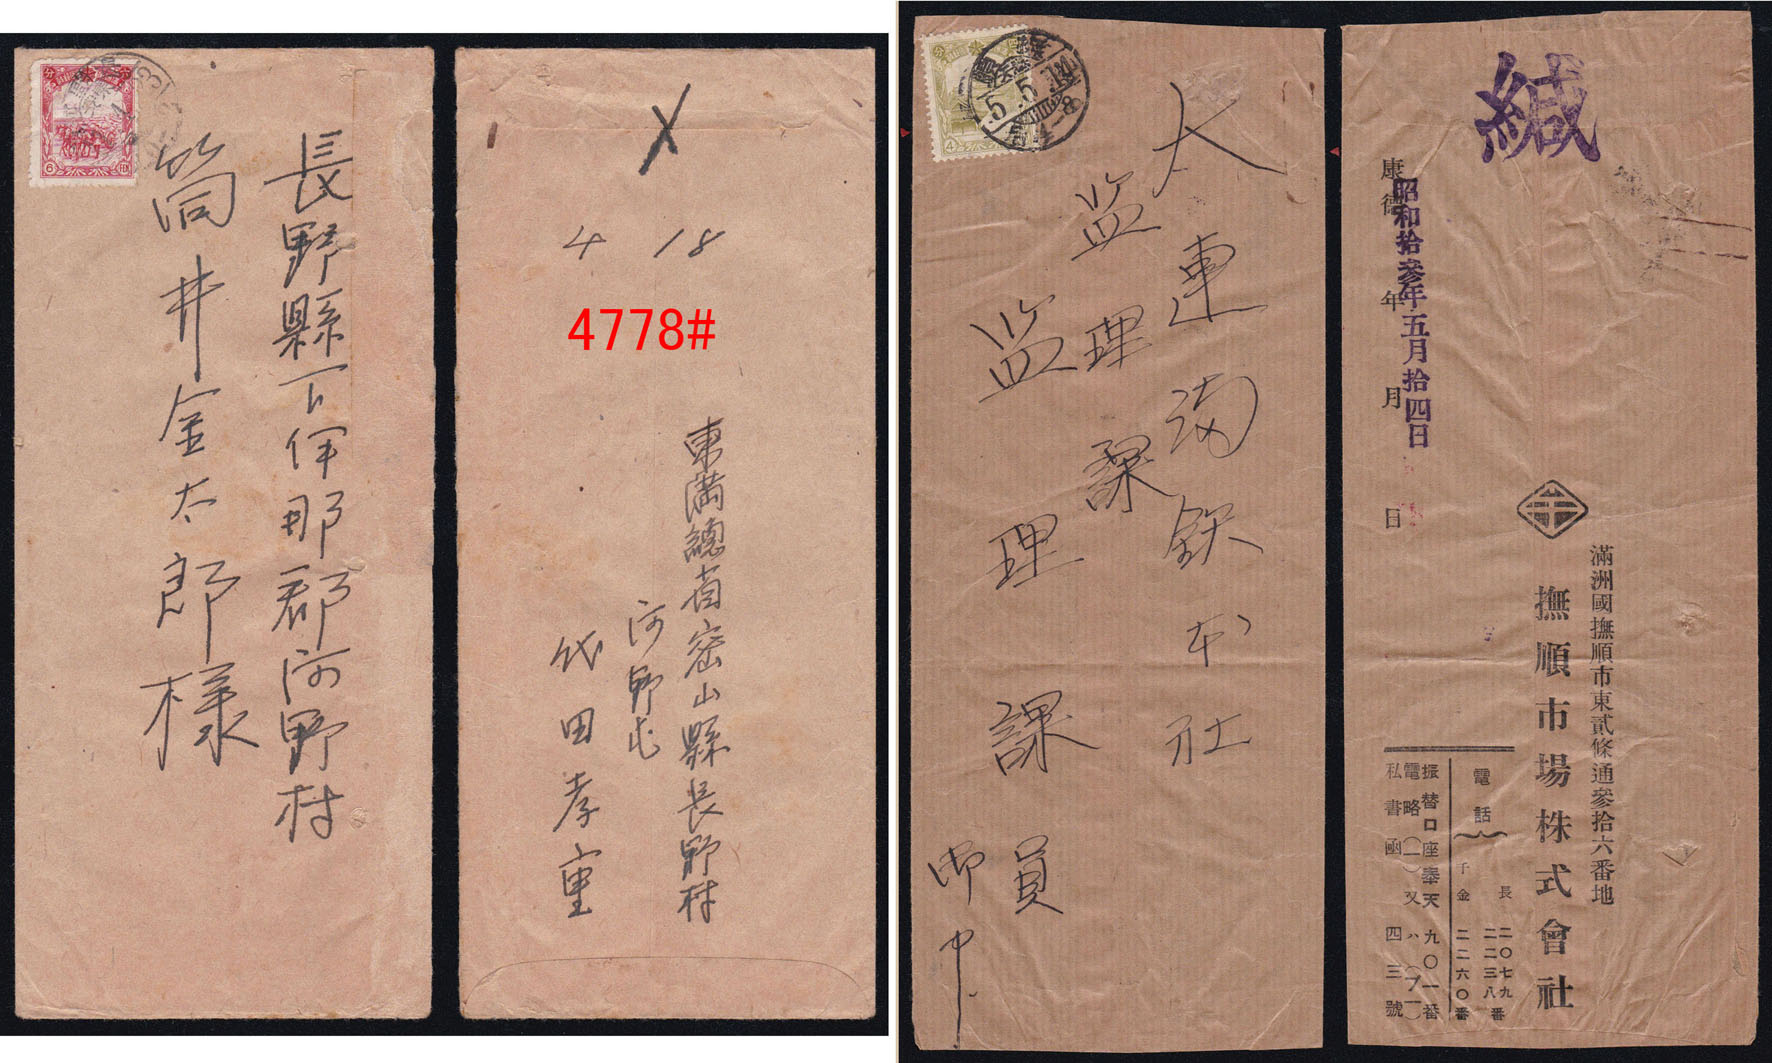 長野縣下伊那郡河野村
筒井金太郎様
6
4 18
4778#
東満總省密山縣長野村
河野屯
代田孝重
大連満鉄本社
監理課
監理課員
御中
4
緘
康德 年 月 日
昭和拾参年五月拾四日
滿洲國撫順市東貳條通參拾六番地
撫順市場株式會社
電話
長 二〇七九
二二三八番
千金 二二六〇番
振替口座奉天九〇一番
私書函四三號